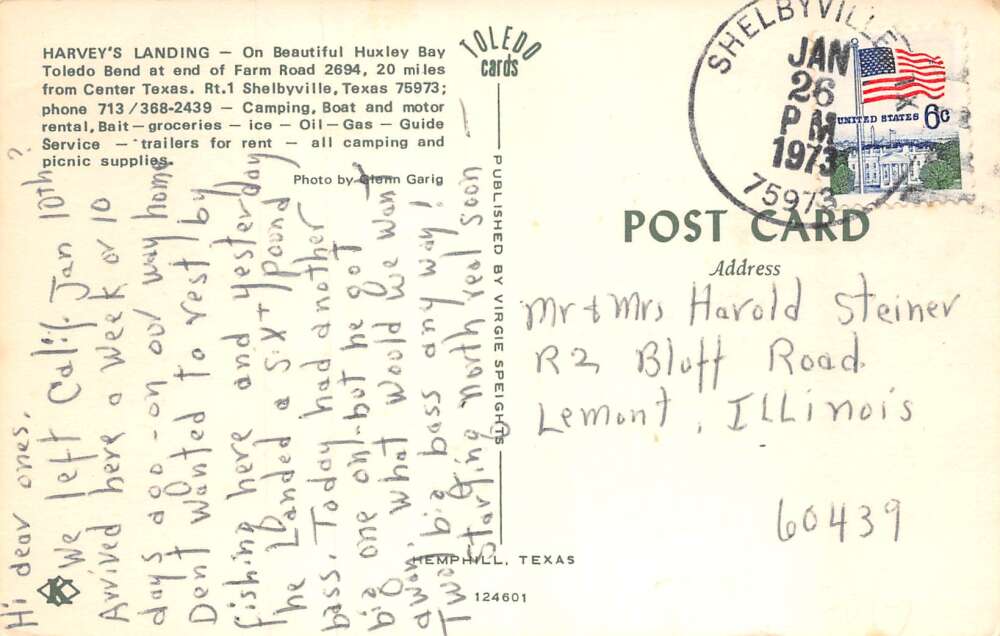 HARVEY'S LANDING — On Beautiful Huxley Bay
Toledo Bend at end of Farm Road 2694, 20 miles
from Center Texas. Rt.1 Shelbyville, Texas 75973;
phone 713/368-2439 — Camping, Boat and motor
rental, Bait — groceries — ice — Oil — Gas — Guide
Service — trailers for rent — all camping and
picnic supplies.
Photo by Glenn Garig
TOLEDO
cards
Hi dear ones.
We left Calif. Jan 10th?
Arrived here a week or 10
days ago - on our way home
Dent wanted to rest by
fishing here and yesterday
he landed a six + pound
bass. Today had another
big one on - but he got
away. what would we want
Two big bass any way!
Starting north real soon —
PUBLISHED BY VIRGIE SPEIGHTS
HEMPHILL, TEXAS
K
124601
SHELBYVILLE, TX
JAN
26
PM
1973
75973
UNITED STATES 6c
POST CARD
Address
Mr & Mrs Harold Steiner
R2 Bluff Road
Lemont, ILLinois
60439